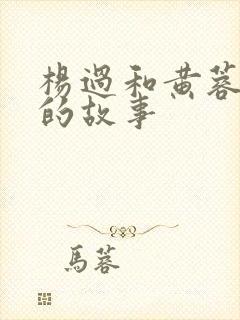 楊過和黄蓉
的故事
馬蓉